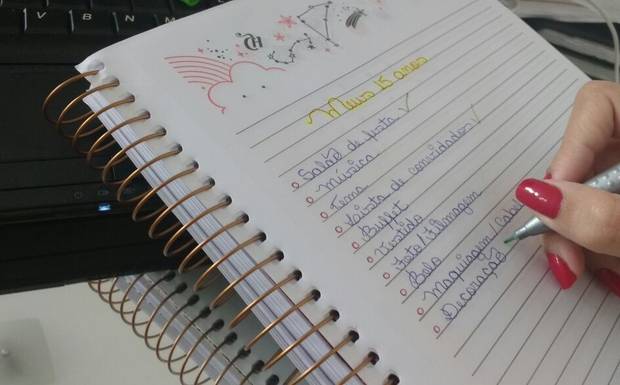 Meus 15 anos
Salão de festa ✓
Música
Tema
Lista de convidados ✓
Buffet
Vestido
Foto/Filmagem
Bolo
Maquiagem/
Decoração
V B N M